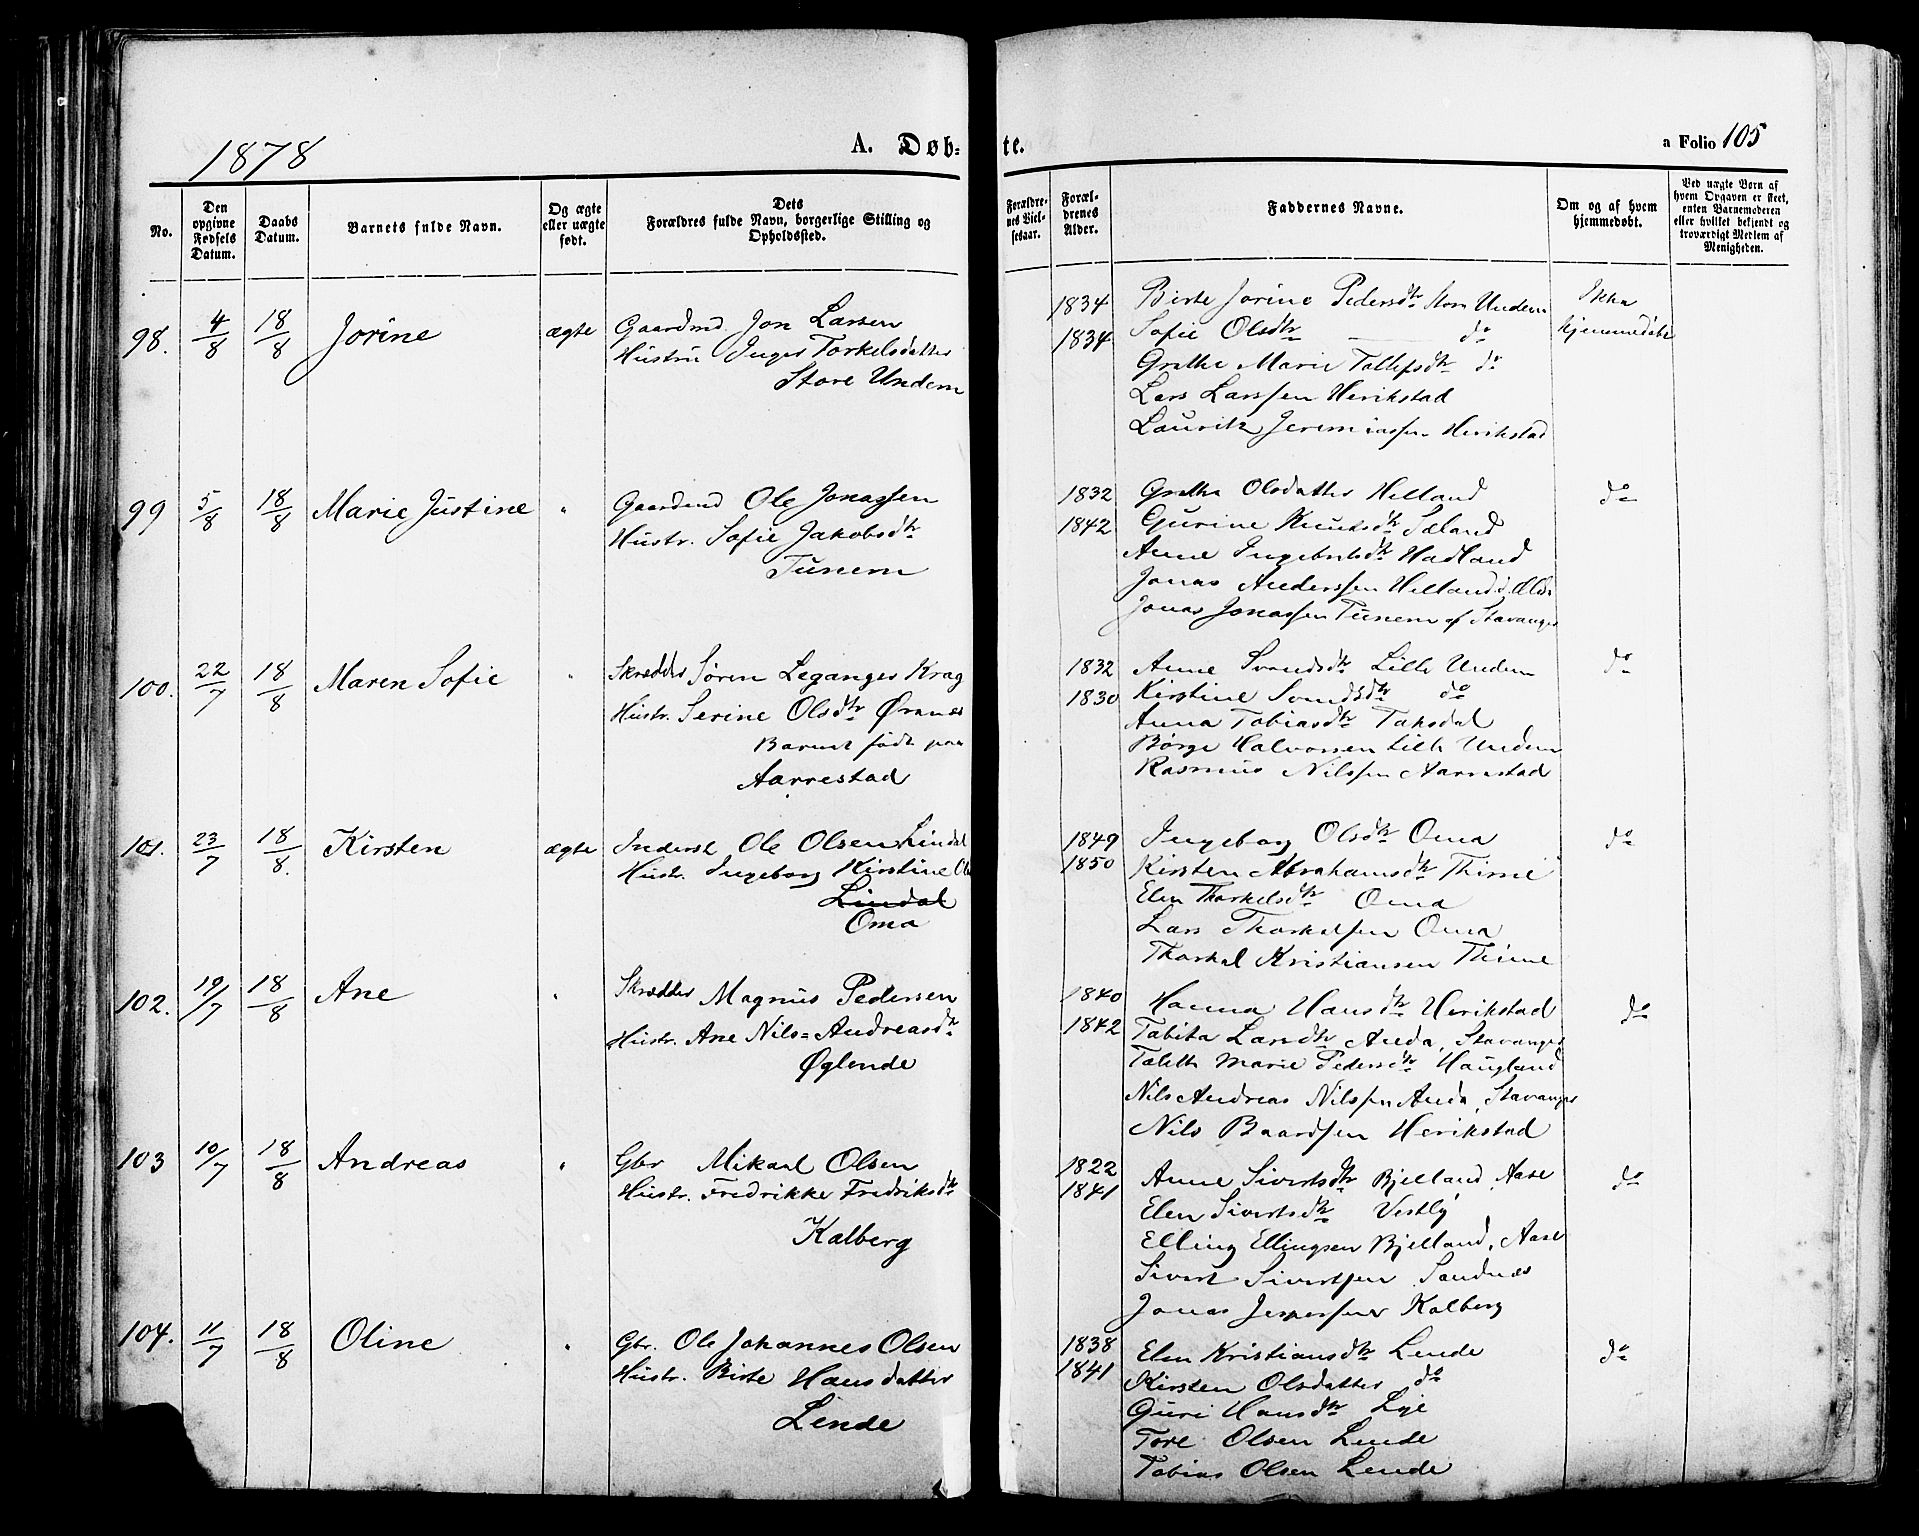 1878
A. Døb-
te.
a Folio 105
No.
Den opgivne Fødsels Datum.
Daabs Datum.
Barnets fulde Navn.
Og ægte eller uægte født.
Dets Forældres fulde Navn, borgerlige Stilling og Opholdssted.
Forældrenes Vielsesaar.
Forældrenes Alder.
Faddernes Navne.
Om og af hvem hjemmedøbt.
Ved uægte Børn af hvem Opgaven er skeet, enten Barnemoderen eller hvilket bekjendt og troværdigt Medlem af Menigheden.
98. 4/8 18/8 Jorine ægte Gaardmd. Jon Larsen
Hustru Inger Torkelsdatter
Store Undem
1834 Birte Jorine Pedersdtr Store Undem Ikke
1834 Sofie Olsdtr do hjemmedøbt
Grethe Marie Tollefsdtr do
Lars Larssen Herikstad
Lauritz Jeremiassen Herikstad
99 5/8 18/8 Marie Justine " Gaardmd Ole Jonassen
Hustr. Sofie Jakobsdtr
Tunem
1832 Grethe Olsdatter Helland do
1842 Gurine Knutsdtr Sæland
Anne Ingebrtsdtr Hadland
Jonas Anderssen Helland
Jonas Jonassen Tunem af Stavanger
100. 22/7 18/8 Maren Sofie " Skrædder Søren Leganger Krag
Hustr. Serine Olsdtr Øranes
Barnet født paa
Aarrestad
1832 Anne Svendsdtr Lille Undem do
1830 Kirstine Svendsdtr do
Anna Tobiasdtr Taksdal
Børge Halvorsen Lille Undem
Rasmus Nilssen Aarrestad
101. 23/7 18/8. Kirsten ægte Inderst Ole Olsen Lindal
Hustr. Ingeborg Kirstine
Lindal
Oma
1849 Ingeborg Olsdtr Oma do
1850 Kirsten Abrahamsdtr Thime
Elen Thorkelsdtr Oma
Lars Thorkelsen Oma
Thorkel Kristiansen Thime
102. 19/7 18/8 Ane " Skrædder Magnus Pedersen
Hustr. Ane Nils=Andreasdtr
Øglende
1840 Hanna Hansdtr Herikstad do
1842 Tabita Larsdtr Auda, Stavanger
Taleth Marie Pedersdtr Haugland
Nils Andreas Nilssen Auda, Stavanger
Nils Baardsen Herikstad
103 10/7 18/8 Andreas " Gbr Mikael Olsen
Hustr. Fredrikke Fredriksdtr
Kalberg
1822 Anne Sivertsdtr Bjelland, Aase do
1841 Elen Sivertsdtr Vestly
Elling Ellingsen Bjelland, Aase
Sivert Sivertsen Sandnæs
Jonas Jespersen Kalberg
104. 11/7 18/8 Oline " Gbr. Ole Johannes Olsen
Hustr. Birte Hansdatter
Lende
1838 Elen Kristiansdtr Lende do
1841 Kirsten Olsdatter do
Guri Hansdtr Lye
Tore Olsen Lende
Tobias Olsen Lende